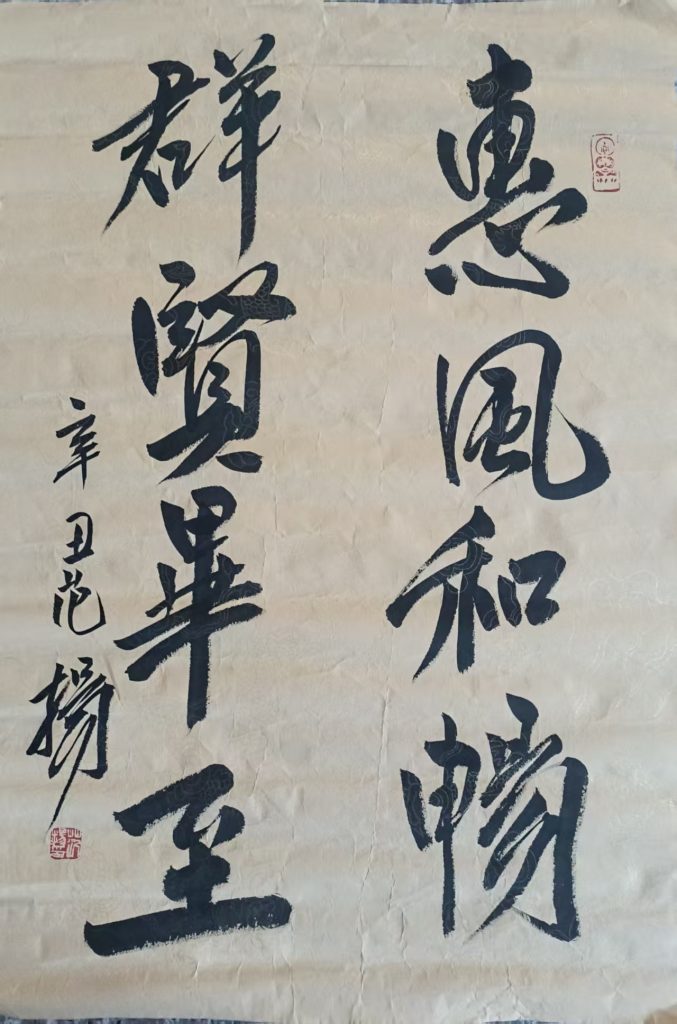 惠風和暢
群賢畢至
辛丑范揚